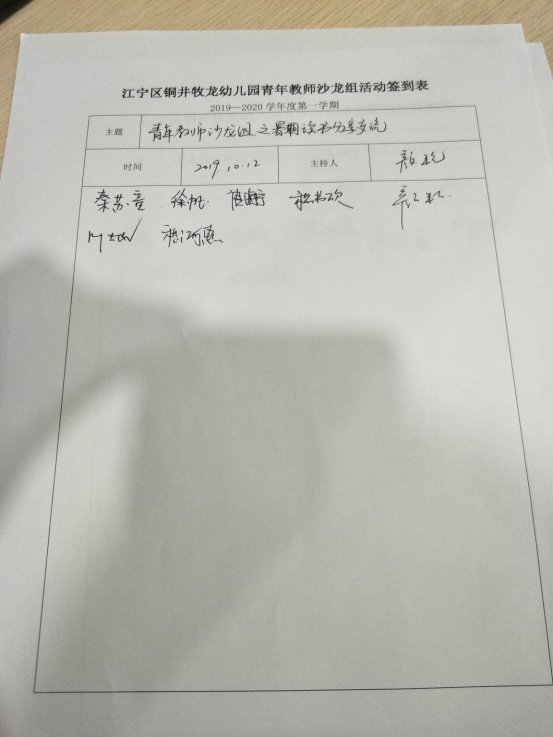 江宁区铜井牧龙幼儿园青年教师沙龙组活动签到表
2019—2020 学年度第一学期
主题 青年教师沙龙组之暑期读书分享交流
时间 2019.10.12 主持人
秦苏音 徐帆